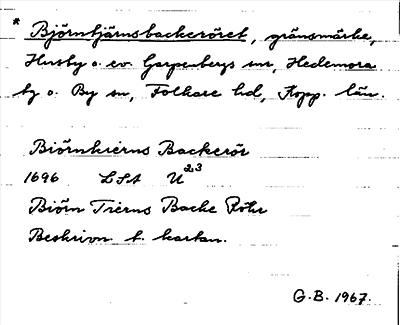 * Björntjärnsbackeröret, gränsmärke,
Husby o. ev. Garpenbergs snr, Hedemora
tg o. By sn, Folkare hd, Kopp. län.
Biörnkierns Backerör
1696 LSA U²³
Biörn Tierns Backe Röhr
Beskrivn t. kartan.
G.B. 1967.